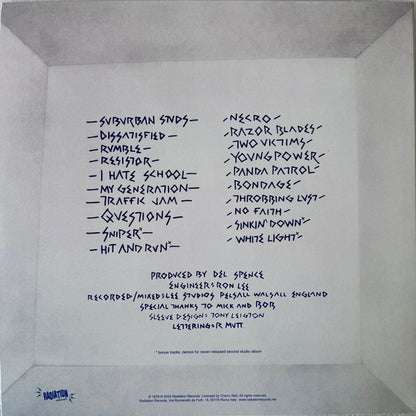 — SUBURBAN STUDS —
— DISSATISFIED —
— RUMBLE —
— RESISTOR —
— I HATE SCHOOL —
— MY GENERATION —
— TRAFFIC JAM —
— QUESTIONS —
— SNIPER* —
— HIT AND RUN* —
- NECRO -
- RAZOR BLADES -
- TWO VICTIMS -
- YOUNG POWER -
- PANDA PATROL -
- BONDAGE -
- THROBBING LUST -
- NO FAITH -
- SINKIN' DOWN* -
- WHITE LIGHT* -
PRODUCED BY DEL SPENCE
ENGINEER:RON LEE
RECORDED/MIXED:LEE STUDIOS PELSALL WALSALL ENGLAND
SPECIAL THANKS TO MICK AND BOB
SLEEVE DESIGN: TONY LEIGTON
LETTERING:R MUTT
* bonus tracks, demos for never released second studio album
RADIATION
Radiation Records, Licensed by Cherry Red. All rights reserved.
Radiation Records, Via Romanello da Forlì, 14, 00176 Roma Italy. www.radiationrecords.net